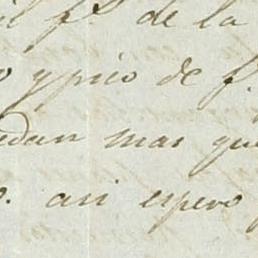 il p.º de la
o y pico de f.
edan mas que
o. asi espero